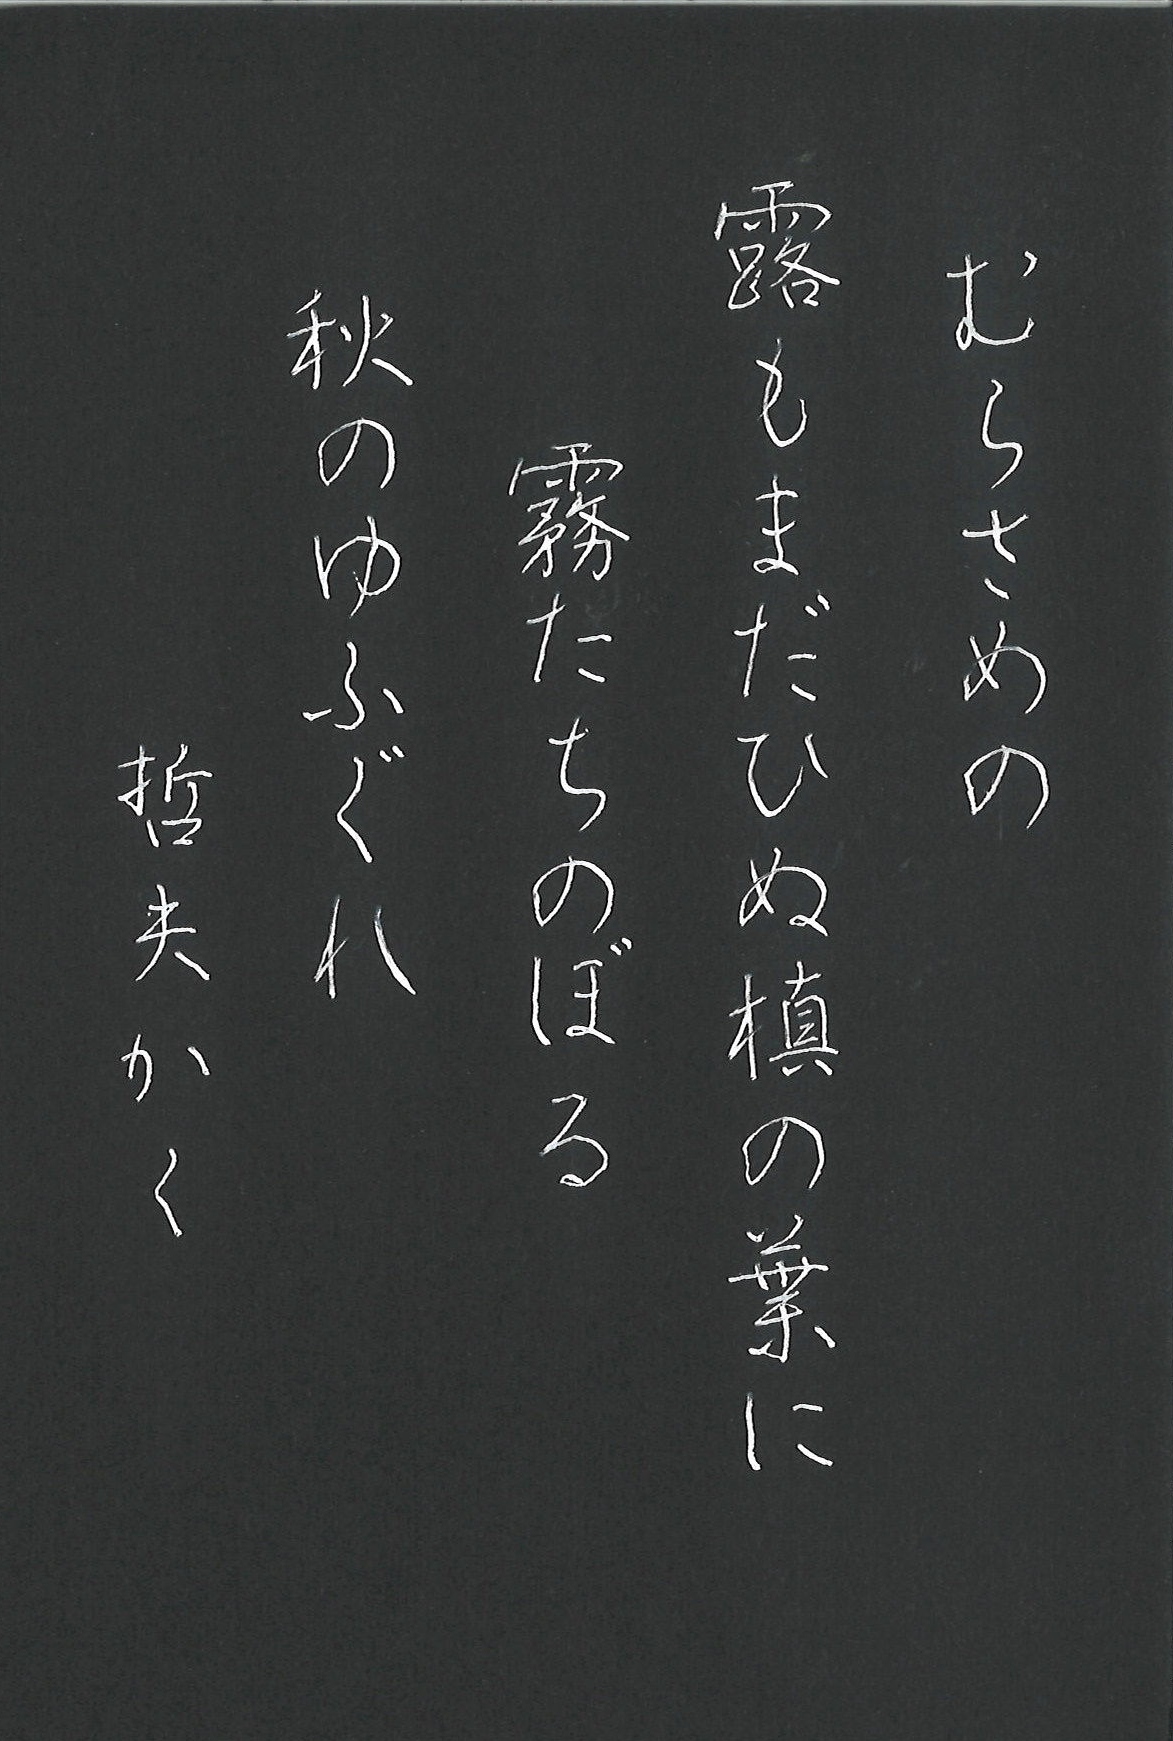 むらさめの
露もまだひぬ槙の葉に
霧たちのぼる
秋のゆふぐれ
哲夫かく